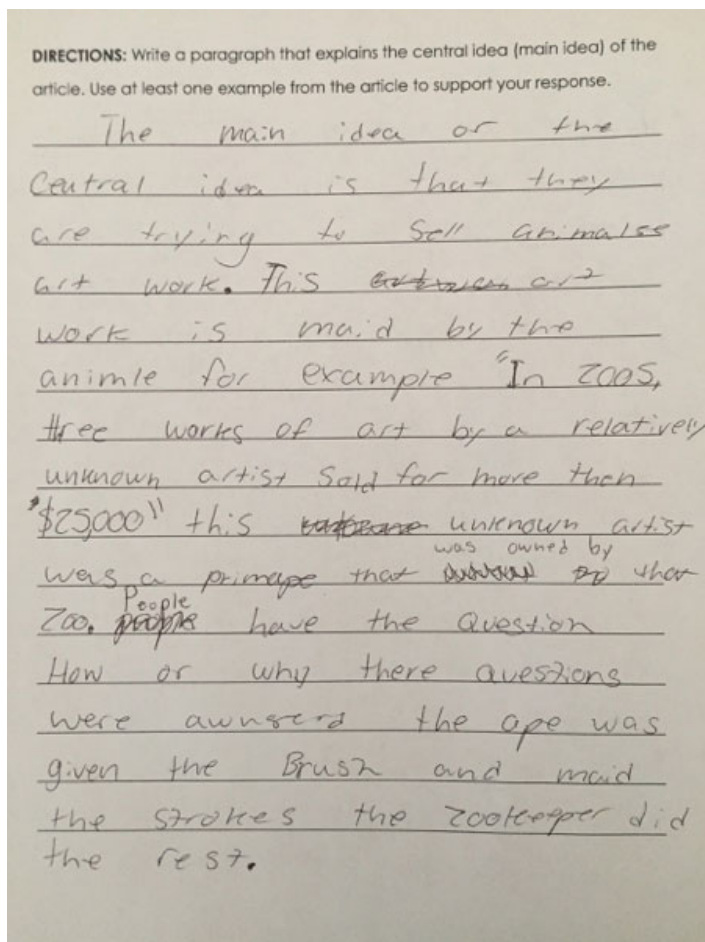 DIRECTIONS: Write a paragraph that explains the central idea (main idea) of the
article. Use at least one example from the article to support your response.
The main idea or the
Central idea is that they
are trying to Sell animalse
art work. This art
work is maid by the
animle for example "In 2005,
three works of art by a relatively
unknown artist Sold for more then
"$25,000" this unknown artist
was owned by
was a primape that that
People
Zoo. have the Question
How or why there questions
were awnserd the ape was
given the Brush and maid
the strokes the zookeeper did
the rest.